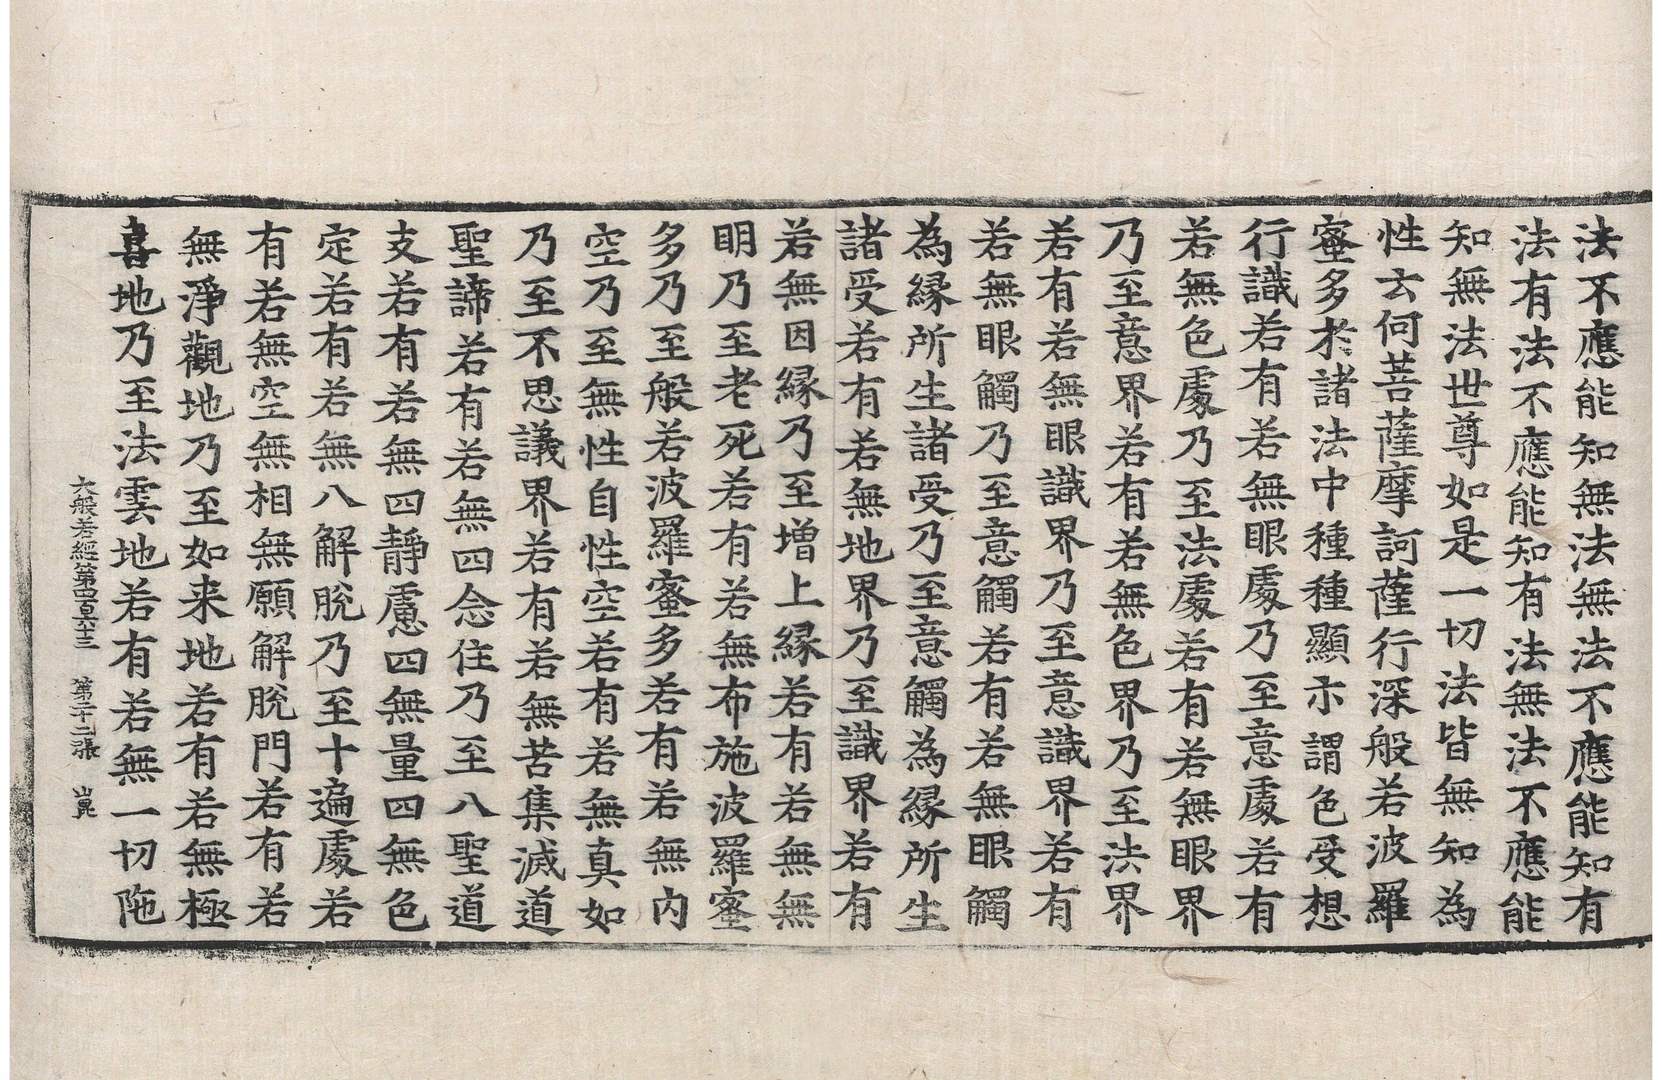 法不應能知無法無法不應能知有
法有法不應能知有法無法不應能
知無法世尊如是一切法皆無知為
性云何菩薩摩訶薩行深般若波羅
蜜多於諸法中種種顯示謂色受想
行識若有若無眼處乃至意處若有
若無色處乃至法處若有若無眼界
乃至意界若有若無色界乃至法界
若有若無眼識界乃至意識界若有
若無眼觸乃至意觸若有若無眼觸
為緣所生諸受乃至意觸為緣所生
諸受若有若無地界乃至識界若有
若無因緣乃至增上緣若有若無無
明乃至老死若有若無布施波羅蜜
多乃至般若波羅蜜多若有若無內
空乃至無性自性空若有若無真如
乃至不思議界若有若無苦集滅道
聖諦若有若無四念住乃至八聖道
支若有若無四靜慮四無量四無色
定若有若無八解脫乃至十遍處若
有若無空無相無願解脫門若有若
無淨觀地乃至如来地若有若無極
喜地乃至法雲地若有若無一切陁
大般若經第四百六十三 第二十二張 崑